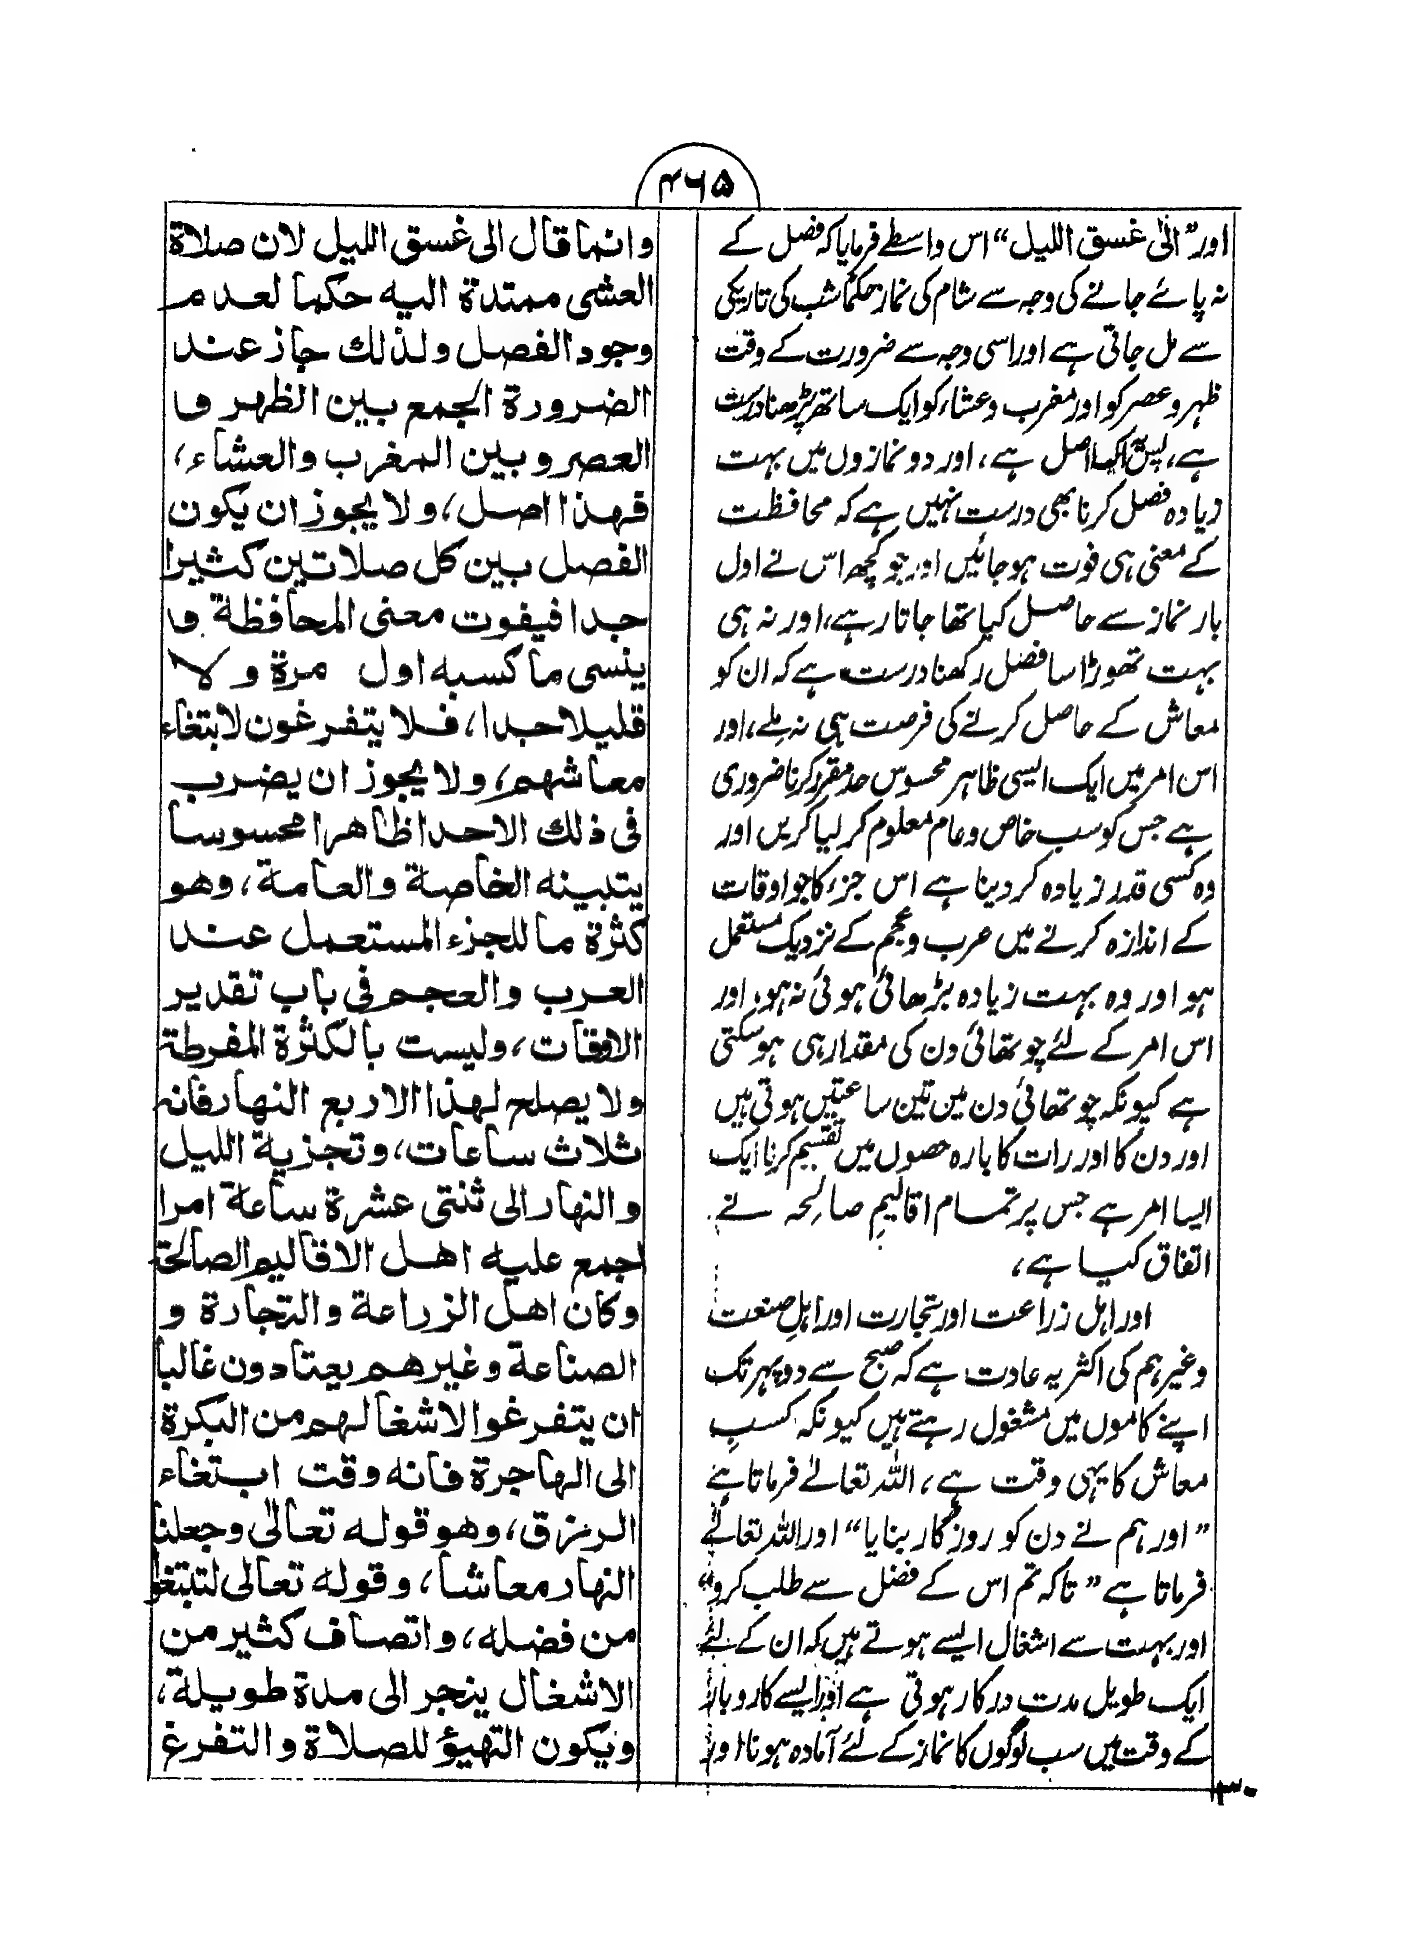 ۴۶۵
اور "الیٰ غسق اللیل" اس واسطے فرمایا کہ فصل کے
نہ پائے جانے کی وجہ سے شام کی نماز حکماً شب کی تاریکی
سے مل جاتی ہے اور اسی وجہ سے ضرورت کے وقت
ظہر و عصر کو اور مغرب و عشاء کو ایک ساتھ پڑھنا درست
ہے، پس ایک اصل ہے، اور دو نمازوں میں بہت
زیادہ فصل کرنا بھی درست نہیں ہے کہ محافظت
کے معنی ہی فوت ہو جائیں اور جو کچھ اس نے اول
بار نماز سے حاصل کیا تھا جاتا رہے، اور نہ ہی
بہت تھوڑا سا فصل رکھنا درست ہے کہ ان کو
معاش کے حاصل کرنے کی فرصت ہی نہ ملے، اور
اس امر میں ایک ایسی ظاہر محسوس حد مقرر کرنا ضروری
ہے جس کو سب خاص و عام معلوم کر لیا کریں اور
وہ کسی قدر زیادہ کر دینا ہے اس جزء کا جو اوقات
کے اندازہ کرنے میں عرب و عجم کے نزدیک مستعمل
ہو اور وہ بہت زیادہ بڑھائی ہوئی نہ ہو، اور
اس امر کے لئے چوتھائی دن کی مقدار ہی ہو سکتی
ہے کیونکہ چوتھائی دن میں تین ساعتیں ہوتی ہیں
اور دن کا اور رات کا بارہ حصوں میں تقسیم کرنا ایک
ایسا امر ہے جس پر تمام اقالیم صالحہ نے
اتفاق کیا ہے،
اور اہل زراعت اور تجارت اور اہلِ صنعت
وغیرہم کی اکثر یہ عادت ہے کہ صبح سے دوپہر تک
اپنے کاموں میں مشغول رہتے ہیں کیونکہ کسبِ
معاش کا یہی وقت ہے، اللہ تعالےٰ فرماتا ہے
"اور ہم نے دن کو روزگار بنایا" اور اللہ تعالےٰ
فرماتا ہے "تاکہ تم اس کے فضل سے طلب کرو"
اور بہت سے اشغال ایسے ہوتے ہیں کہ ان کے لئے
ایک طویل مدت درکار ہوتی ہے اور ایسے کاروبار
کے وقت میں سب لوگوں کا نماز کے لئے آمادہ ہونا اور
وانما قال الی غسق اللیل لان صلاة
العشی ممتدة الیه حکما لعدم
وجود الفصل ولذلك جاز عند
الضرورة الجمع بین الظهر و
العصر وبین المغرب والعشاء،
فهذا اصل، ولا یجوز ان یکون
الفصل بین کل صلاتین کثیرا
جدا فیفوت معنی المحافظة و
ینسی ما کسبه اول مرة و لا
قلیلا جدا، فلا یتفرغون لابتغاء
معاشهم، ولا یجوز ان یضرب
فی ذلك الاحدا ظاهرا محسوسا
یتبینه الخاصة والعامة، وهو
کثرة ما للجزء المستعمل عند
العرب والعجم فی باب تقدیر
الاوقات، ولیست بالکثرة المفرطة
ولا یصلح لهذا الا ربع النهار فانه
ثلاث ساعات، وتجزیة اللیل
والنهار الی ثنتی عشرة ساعة امرا
اجمع علیه اهل الاقالیم الصالحة
وکان اهل الزراعة والتجارة و
الصناعة وغیرهم یعتادون غالبا
ان یتفرغوا لاشغالهم من البکرة
الی الهاجرة فانه وقت ابتغاء
الرزق، وهو قوله تعالیٰ وجعلنا
النهار معاشا، وقوله تعالی لتبتغوا
من فضله، واتصاف کثیر من
الاشغال ینجر الی مدة طویلة،
ویکون التهیؤ للصلاة والتفرغ